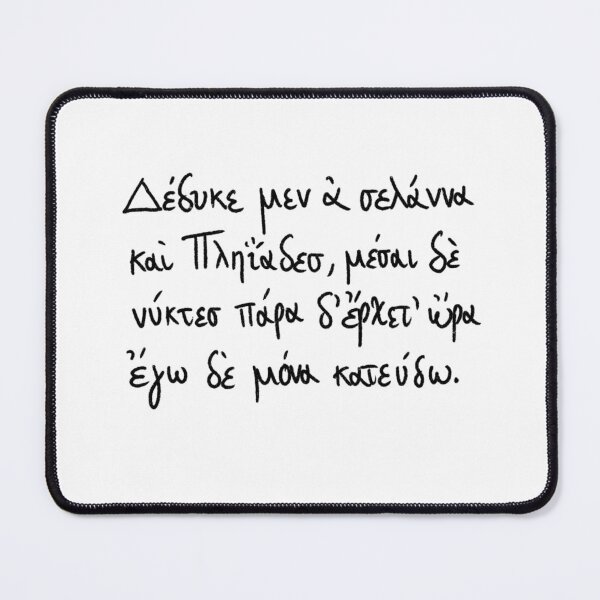 Δέδυκε μεν ἀ σελάννα
καὶ Πληΐαδεσ, μέσαι δὲ
νύκτεσ πάρα δ' ἔρχετ' ὤρα
ἔγω δὲ μόνα κατεύδω.